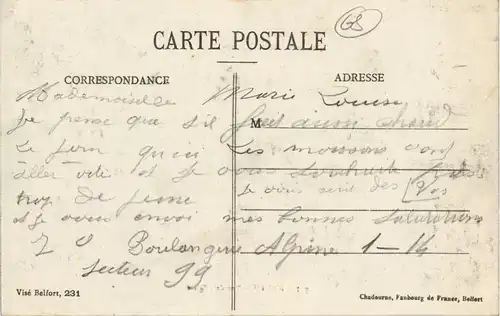 68
CARTE POSTALE
CORRESPONDANCE
ADRESSE
Mademoiselle Marie Louise
Je pense que s'il fait aussi chaud
M
Le Jura qu'ici Les moissons vont
aller vite et je vous souhaite pas
trop de peine
Je vous
des
Vos
et je vous envoi mes bonnes salutations
Boulangerie Alpine 1-14
secteur 99
Visé Belfort, 231
Chadourne, Faubourg de France, Belfort